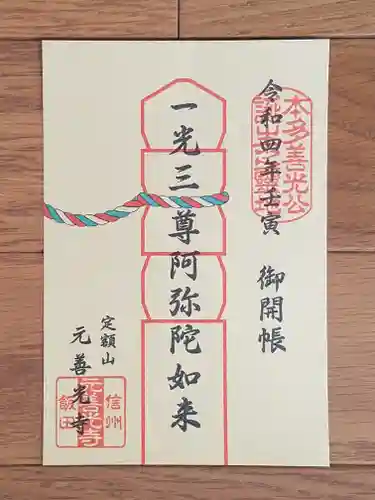 令和四年壬寅 御開帳
本多善光公
一光三尊阿弥陀如来
定額山
元善光寺
信州
飯田